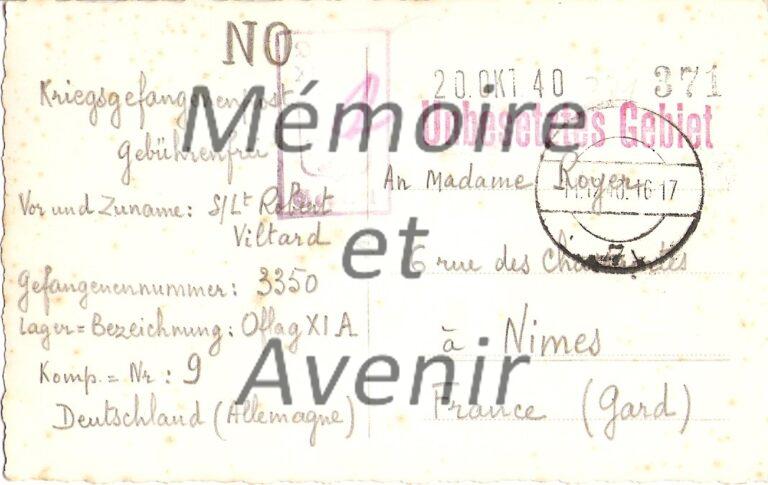 NO
Kriegsgefangenenpost
Gebührenfrei
Vor und Zuname: S/Lt Robert
Viltard
Gefangenennummer: 3350
Lager=Bezeichnung: Oflag XI A
Komp.=Nr: 9
Deutschland (Allemagne)
20.OKT.40
371
Unbesetztes Gebiet
An Madame Royer
6 rue des
à Nimes
France (Gard)
Mémoire
et
Avenir